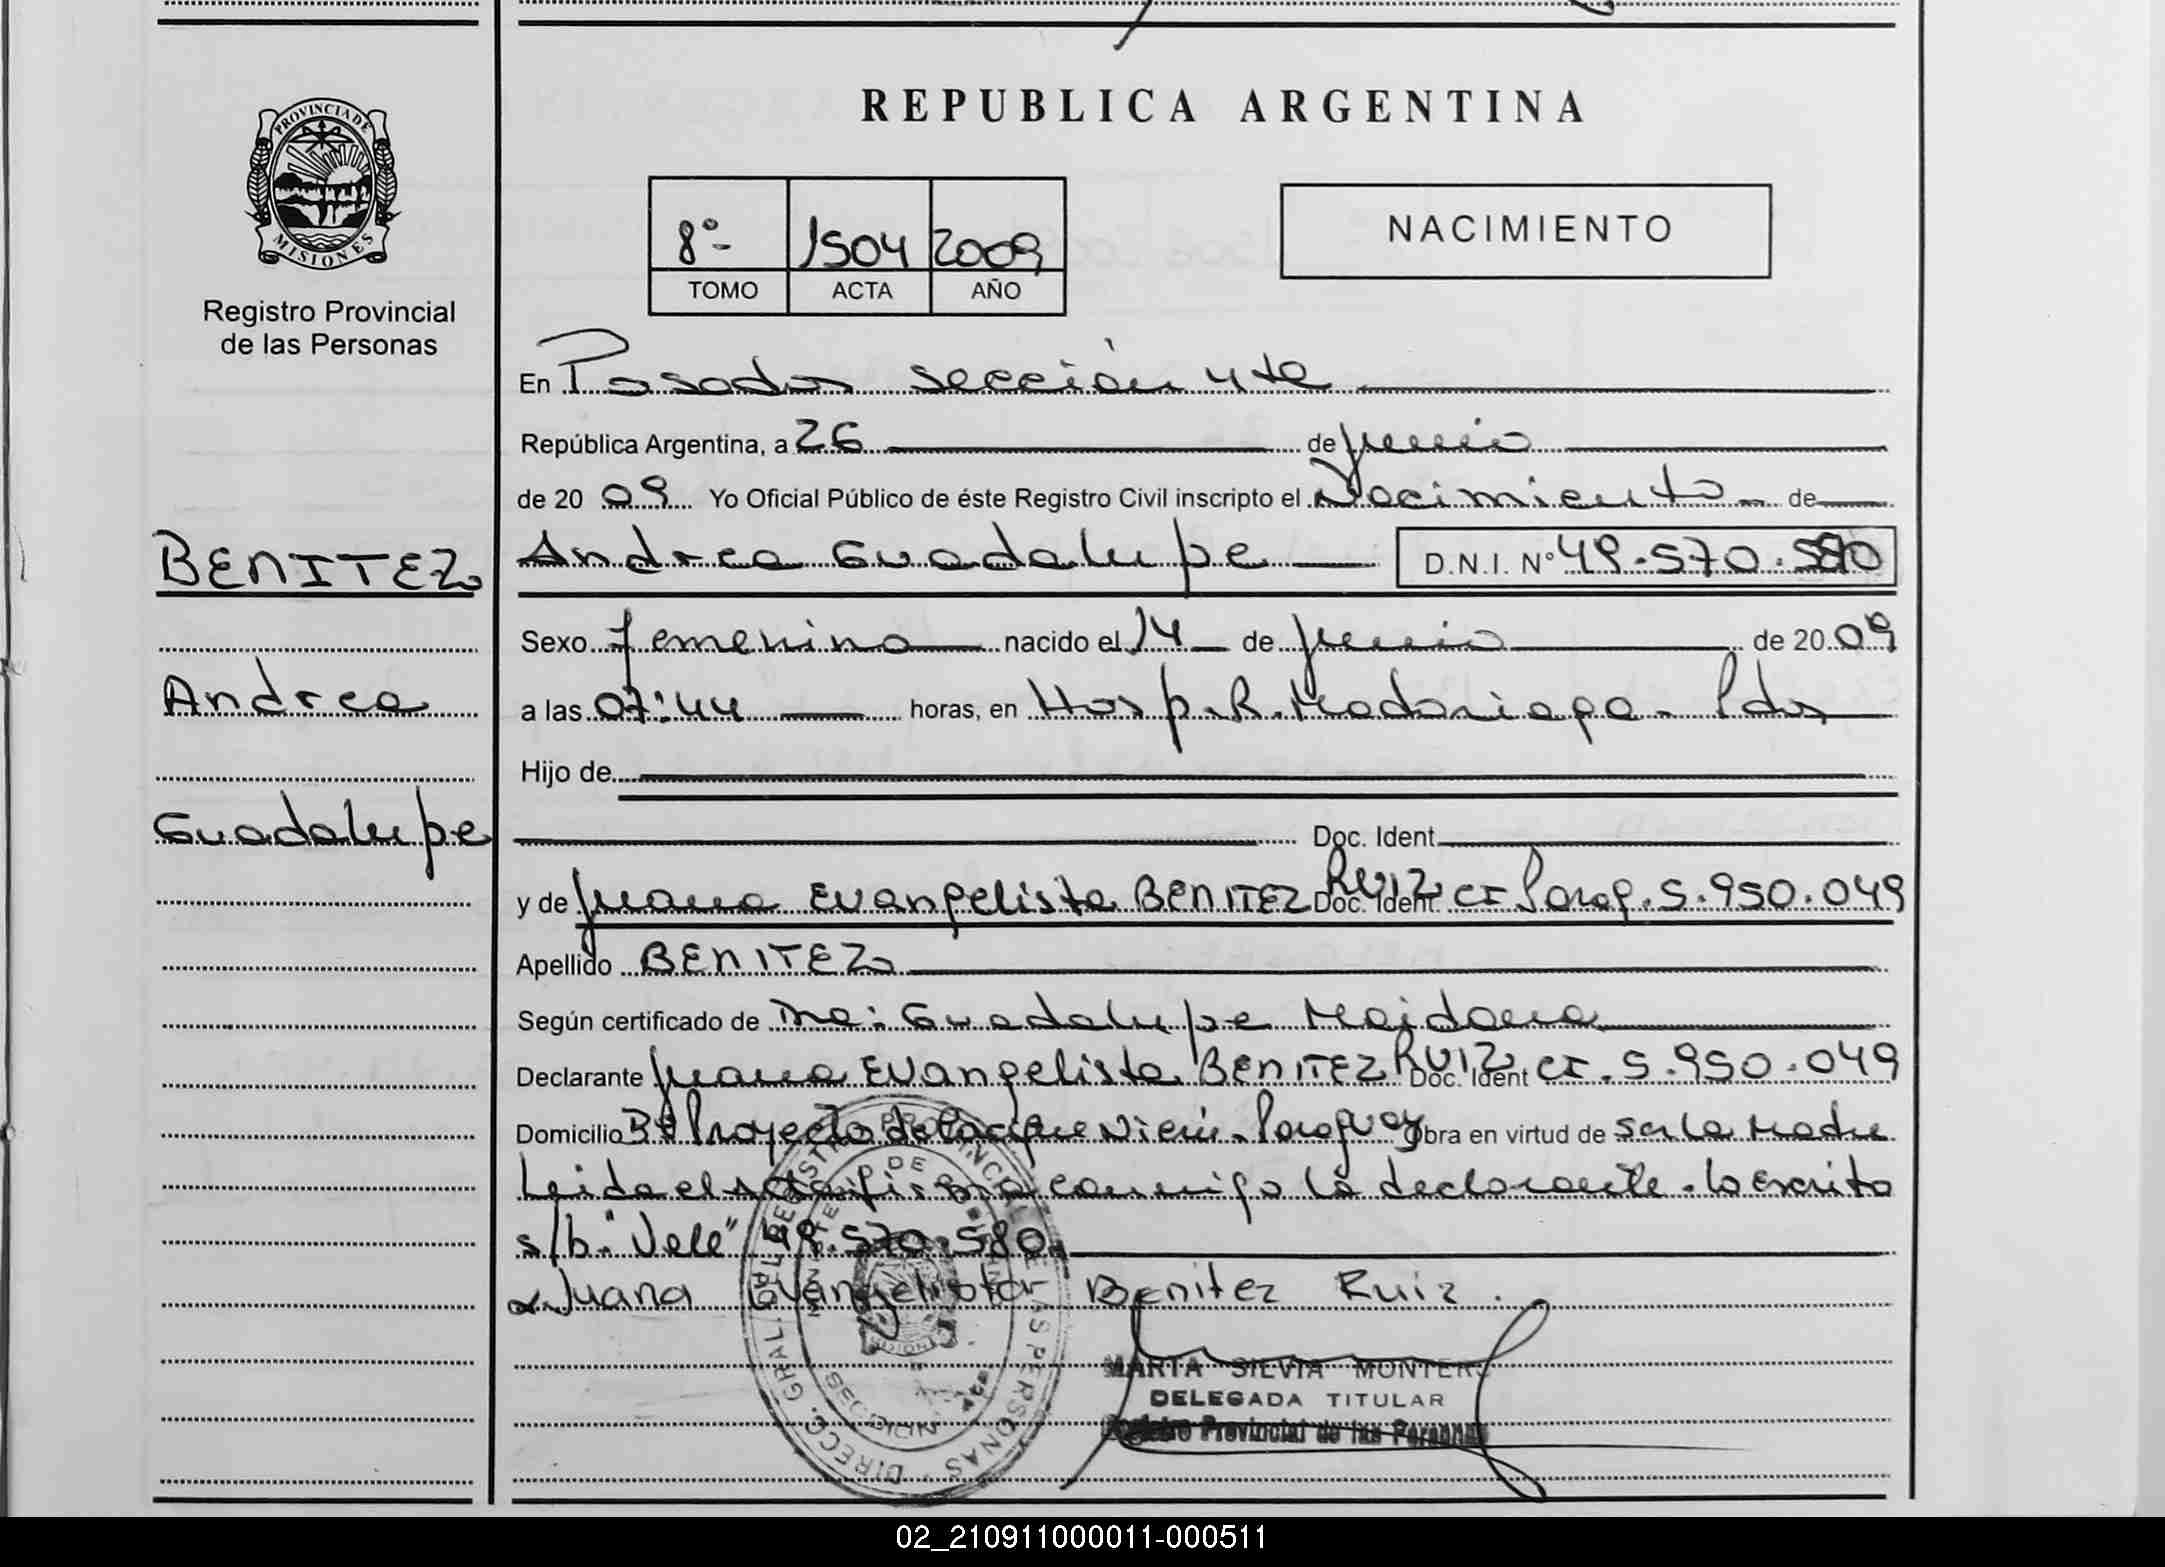 PROVINCIA DE
MISIONES
Registro Provincial
de las Personas
REPUBLICA ARGENTINA
8º- 1504 2009
TOMO ACTA AÑO
NACIMIENTO
En Posadas sección 4ta
República Argentina, a 26 de junio
de 2009 Yo Oficial Público de éste Registro Civil inscripto el Nacimiento de
BENITEZ
Andrea Guadalupe D.N.I. Nº 49.570.580
Sexo femenino nacido el 14 de junio de 2009
Andrea
a las 07:44 horas, en Hosp. R. Madariaga - Pdas
Hijo de
Guadalupe
Doc. Ident.
y de Juana Evangelista BENITEZ RUIZ Doc. Ident. CI Parag. 5.950.049
Apellido BENITEZ
Según certificado de Dra: Guadalupe Maidana
Declarante Juana Evangelista BENITEZ RUIZ Doc. Ident CI. 5.950.049
Domicilio Bº Proyecto de Paraguay Obra en virtud de ser la Madre
Leida el acta firma conmigo la declarante. lo escrito
s/b. "Vale" 49.570.580
Juana Evangelista Benitez Ruiz.
MARTA SILVIA MONTERO
DELEGADA TITULAR
Registro Provincial de las Personas
02_210911000011-000511